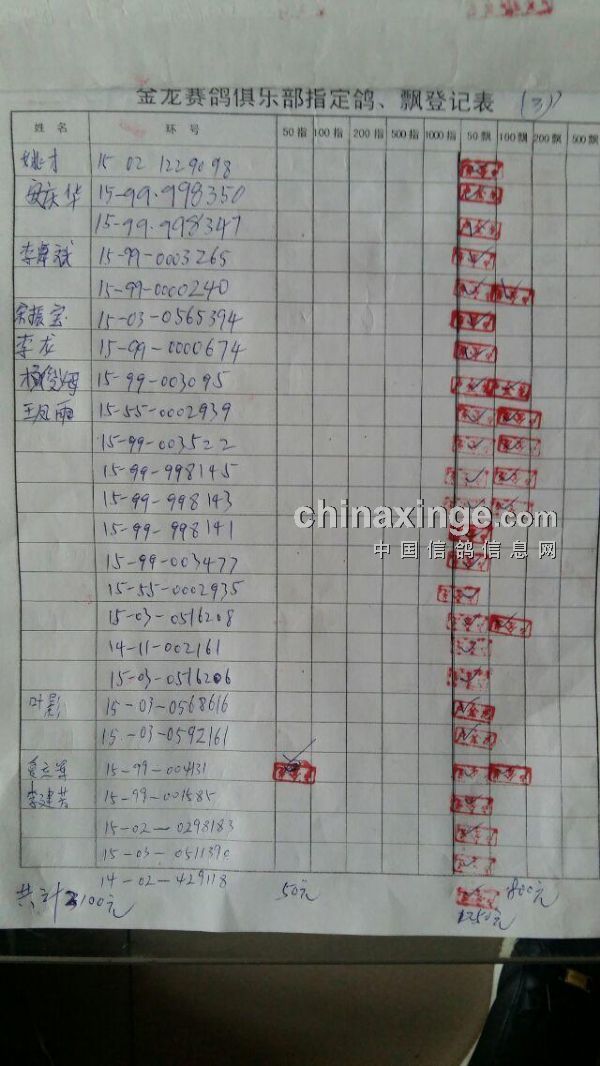 金龙赛鸽俱乐部指定鸽、飘登记表 (3)
姓名 环号 50指 100指 200指 500指 1000指 50飘 100飘 200飘 500飘
姚才 15-02 1229098
安庆华 15-99-998350
15-99-998347
李舞斌 15-99-0003265
15-99-0000240
宋振宝 15-03-0565394
李龙 15-99-0000674
15-99-003095
王凤雨 15-55-0002939
15-99-003522
15-99-998145
15-99-998143
15-99-998141
15-99-003477
15-55-0002935
15-03-0516208
14-11-002161
15-03-0516206
叶影 15-03-0568616
15-03-0592161
15-99-004131
李建芳 15-99-001585
15-02-0298183
15-03-0511390
14-02-429118
共计 2100元 50元 1250元 800元
chinaxinge.com
中国信鸽信息网